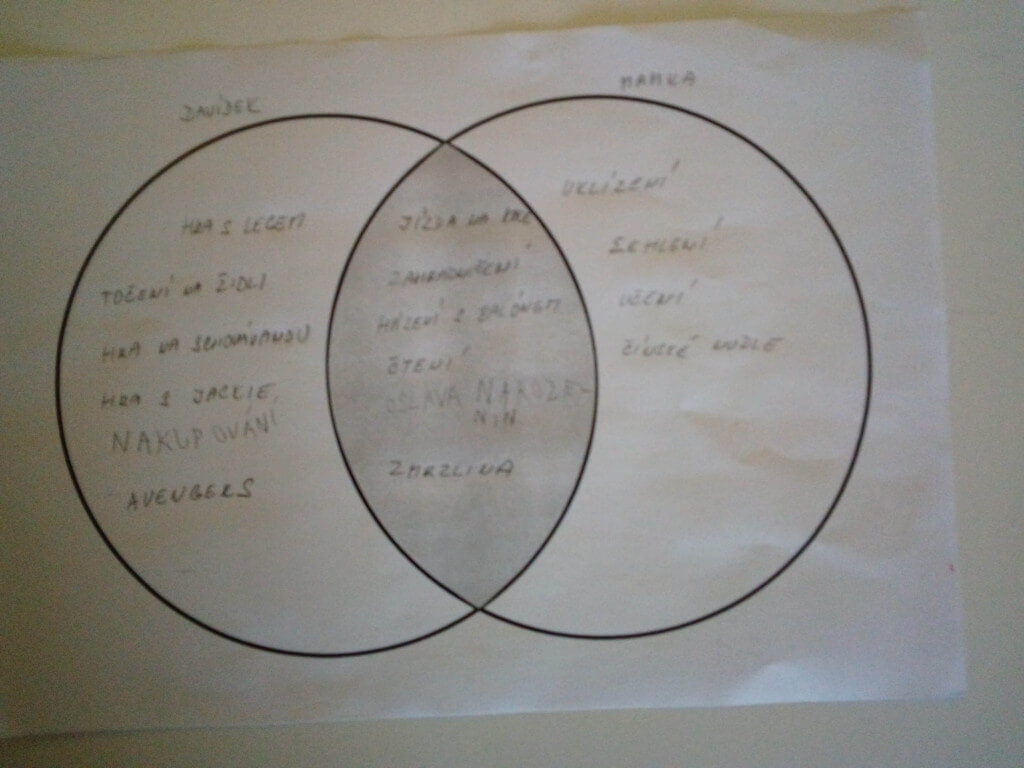 DAVÍDEK
HRA S LEGEM
TOČENÍ NA ŽIDLI
HRA NA SCHOVÁVANDU
HRA S JACKIE,
NAKUPOVÁNÍ
AVENGERS
JÍZDA NA KOLE
ZAHRADNIČENÍ
HÁZENÍ S BALÓNEM
ČTENÍ
OSLAVA NAROZE-
NIN
ZMRZLINA
MAMKA
UKLÍZENÍ
ŽEHLENÍ
UČENÍ
ČÍNSKÉ NUDLE